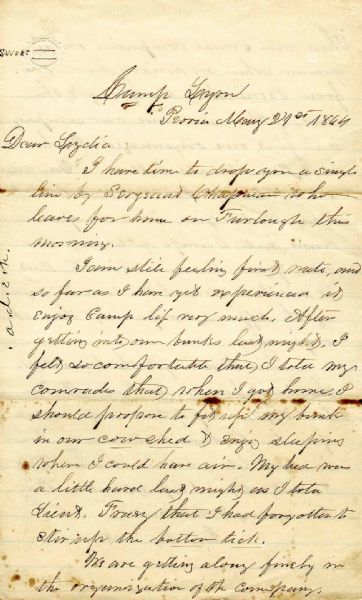 Sweet
Camp Lyon
Peoria May 21st 1864
Dear Lydia
I have time to drop you a single
line by Sergeant Chapman who
leaves for home on Furlough this
morning.
I am still feeling first rate, and
so far as I have yet experienced it
enjoy Camp life very much. After
getting into our bunks last night, I
felt so comfortable that I told my
comrades that when I got home, I
should propose to fit up my bunk
in our cow shed & enjoy sleeping
where I could have air. My bed was
a little hard last night as I told
Lieut. that I had forgotten to
stir up the button tick.
We are getting along finely in
the organization of the company.